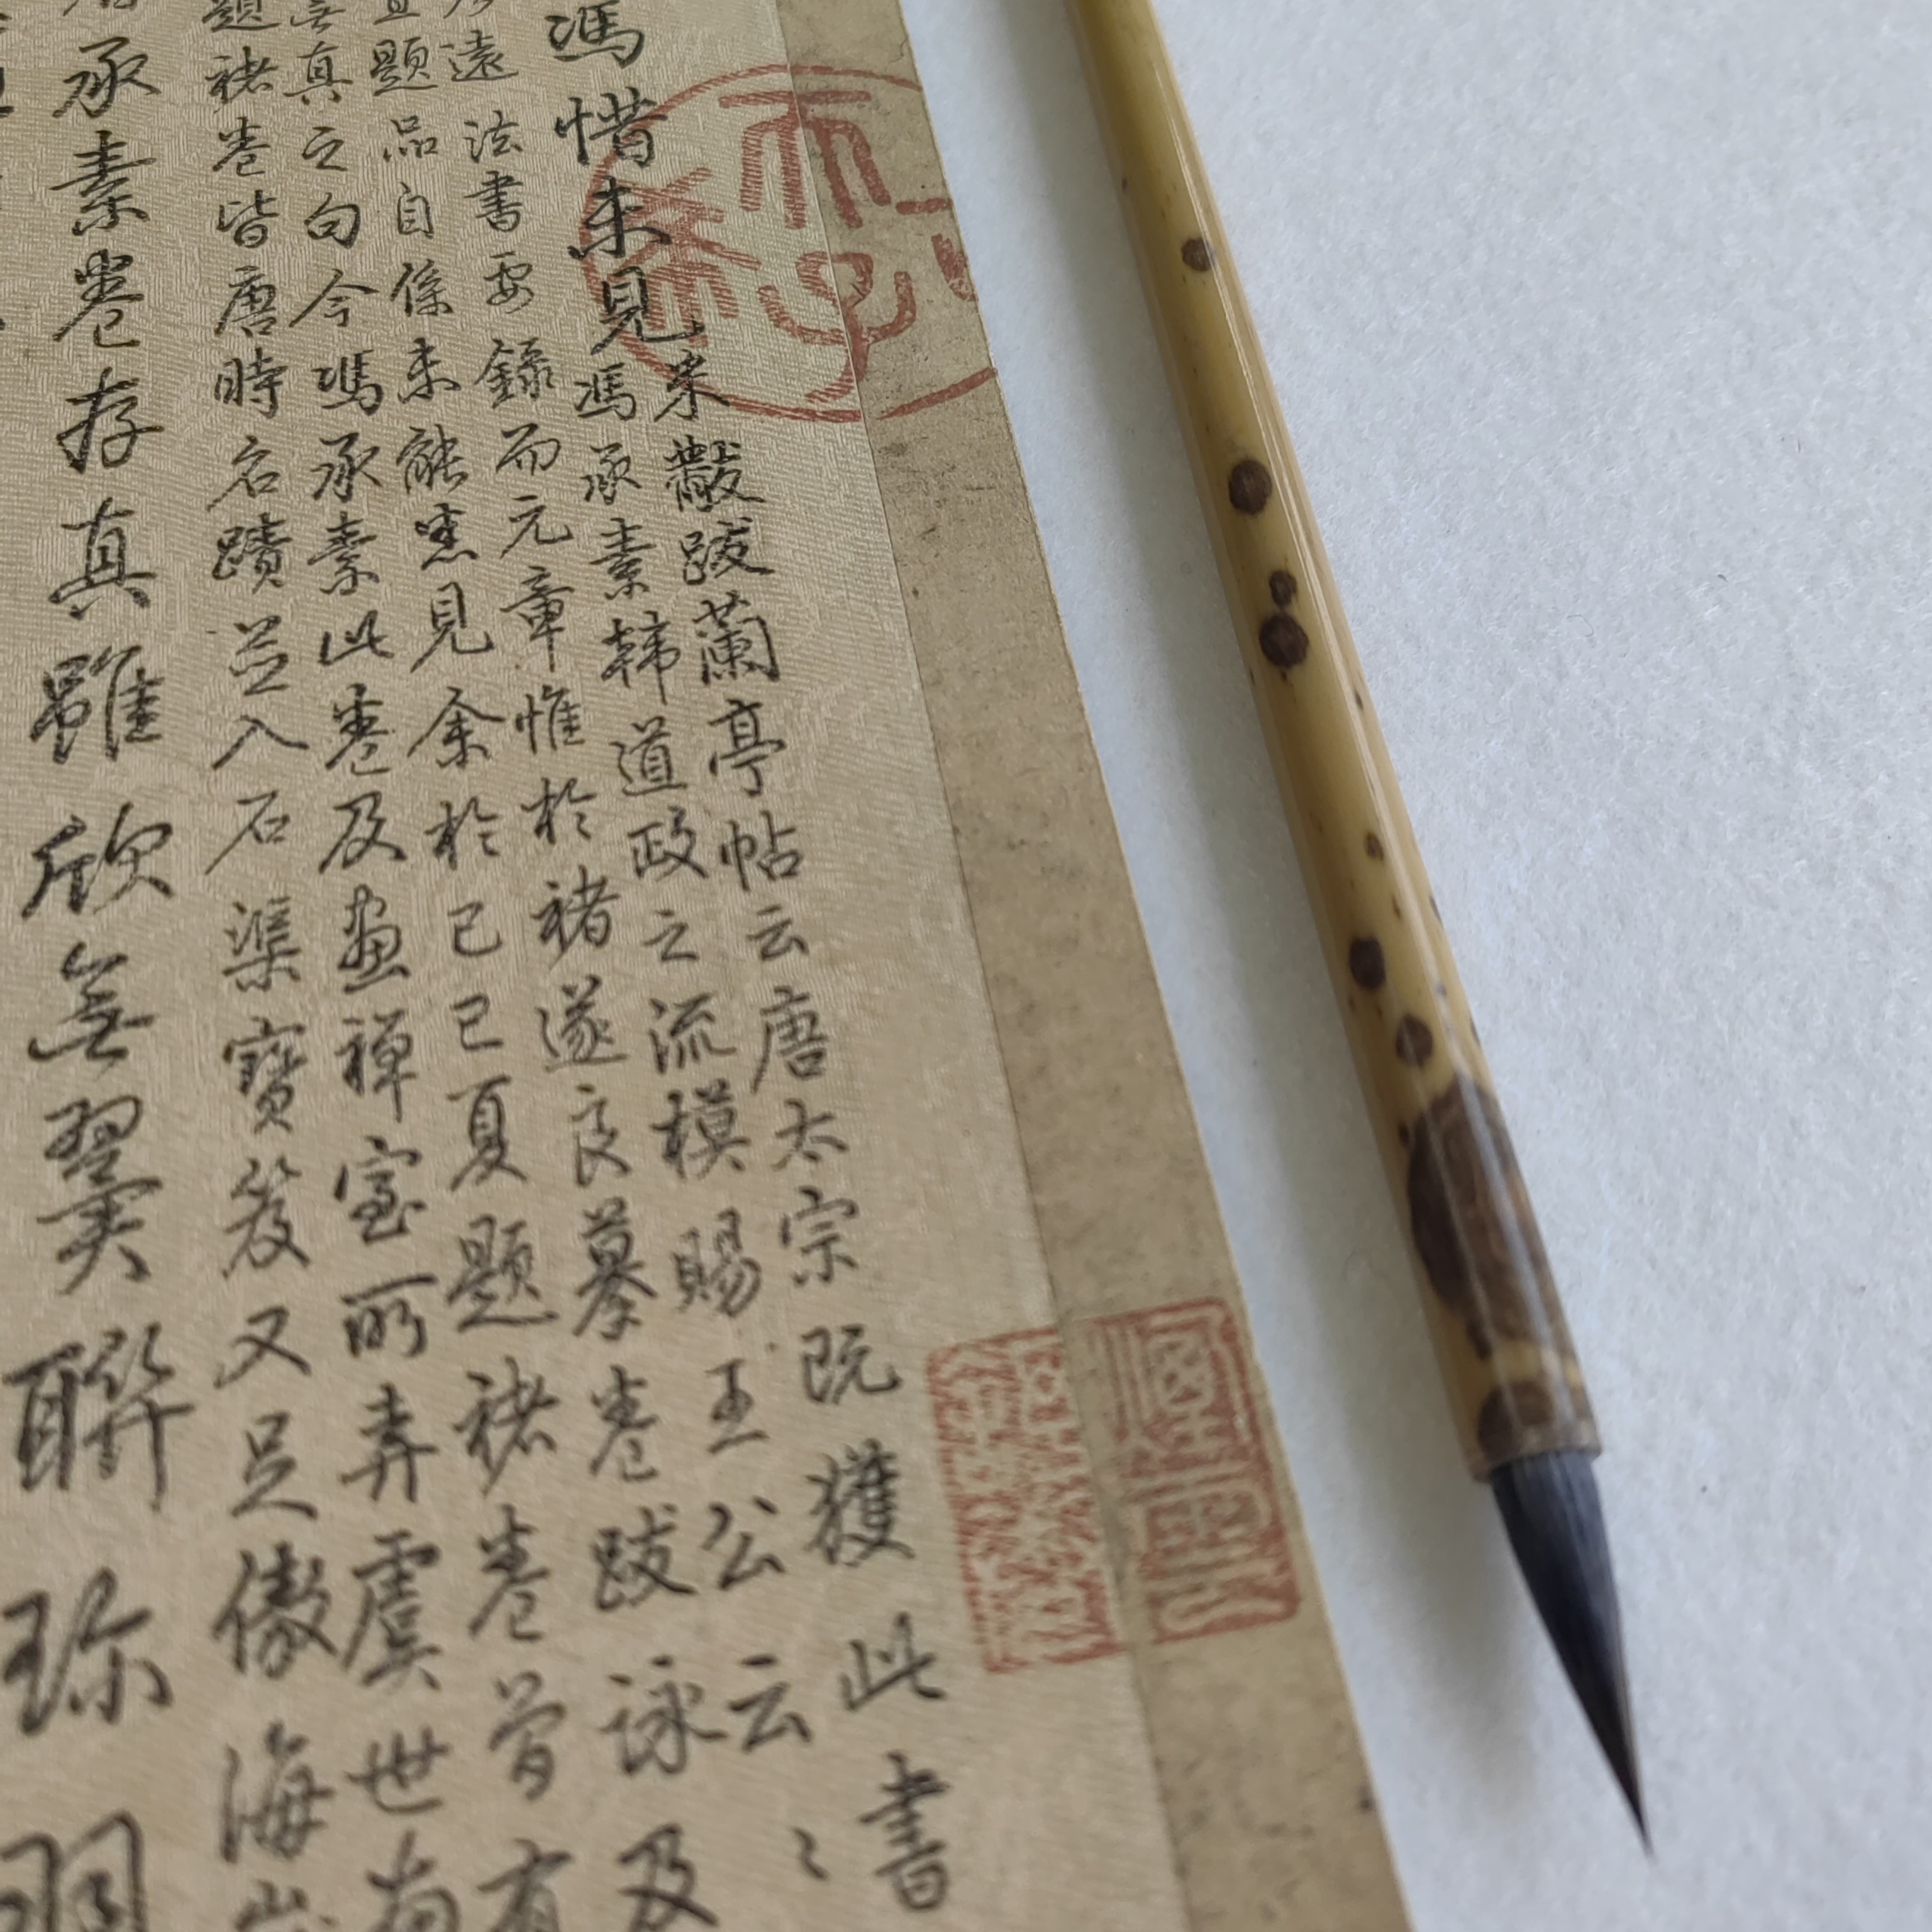 馮惜未見
米黻跋蘭亭帖云唐太宗既獲此書
馮承素韓道政之流模賜王公云〻
遠法書要録而元章惟於褚遂良摹卷跋詠及
且題品自係未能悉見余於己巳夏題褚卷曾有
無真之句今馮承素此卷及畫禪室所弆虞世南
題褚卷皆唐時名蹟並入石渠寶笈又足傲海
承素卷存真雖欣無翼聯珎
天子